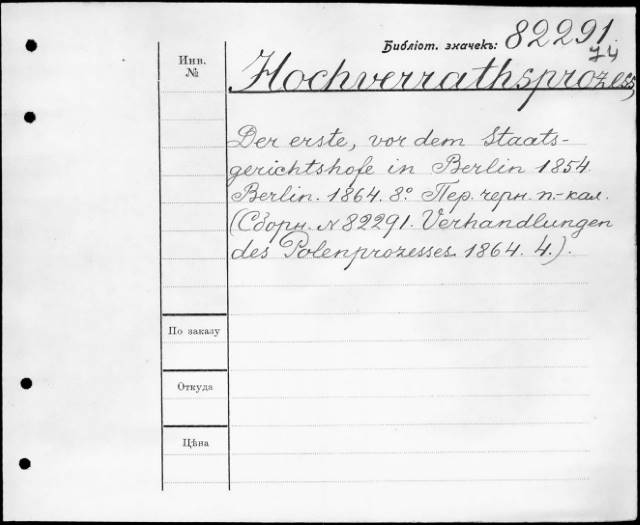 Библіот. значекъ: 82291.
74
Инв.
№
Hochverrathsprozess,
Der erste, vor dem Staats-
gerichtshofe in Berlin 1854.
Berlin. 1864. 8°. Пер. черн. п.-кал.
(Сборн. № 82291. Verhandlungen
des Polenprozesses 1864. 4.).
По заказу
Откуда
Цѣна